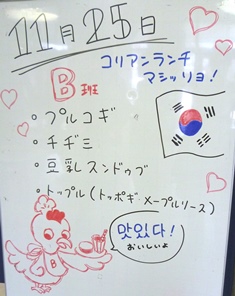 11月25日
コリアンランチ
マシッソヨ!
B班
・プルコギ
・チヂミ
・豆乳スンドゥブ
・トップル(トッポギ メープルソース)
맛있다!
おいしいよ
B